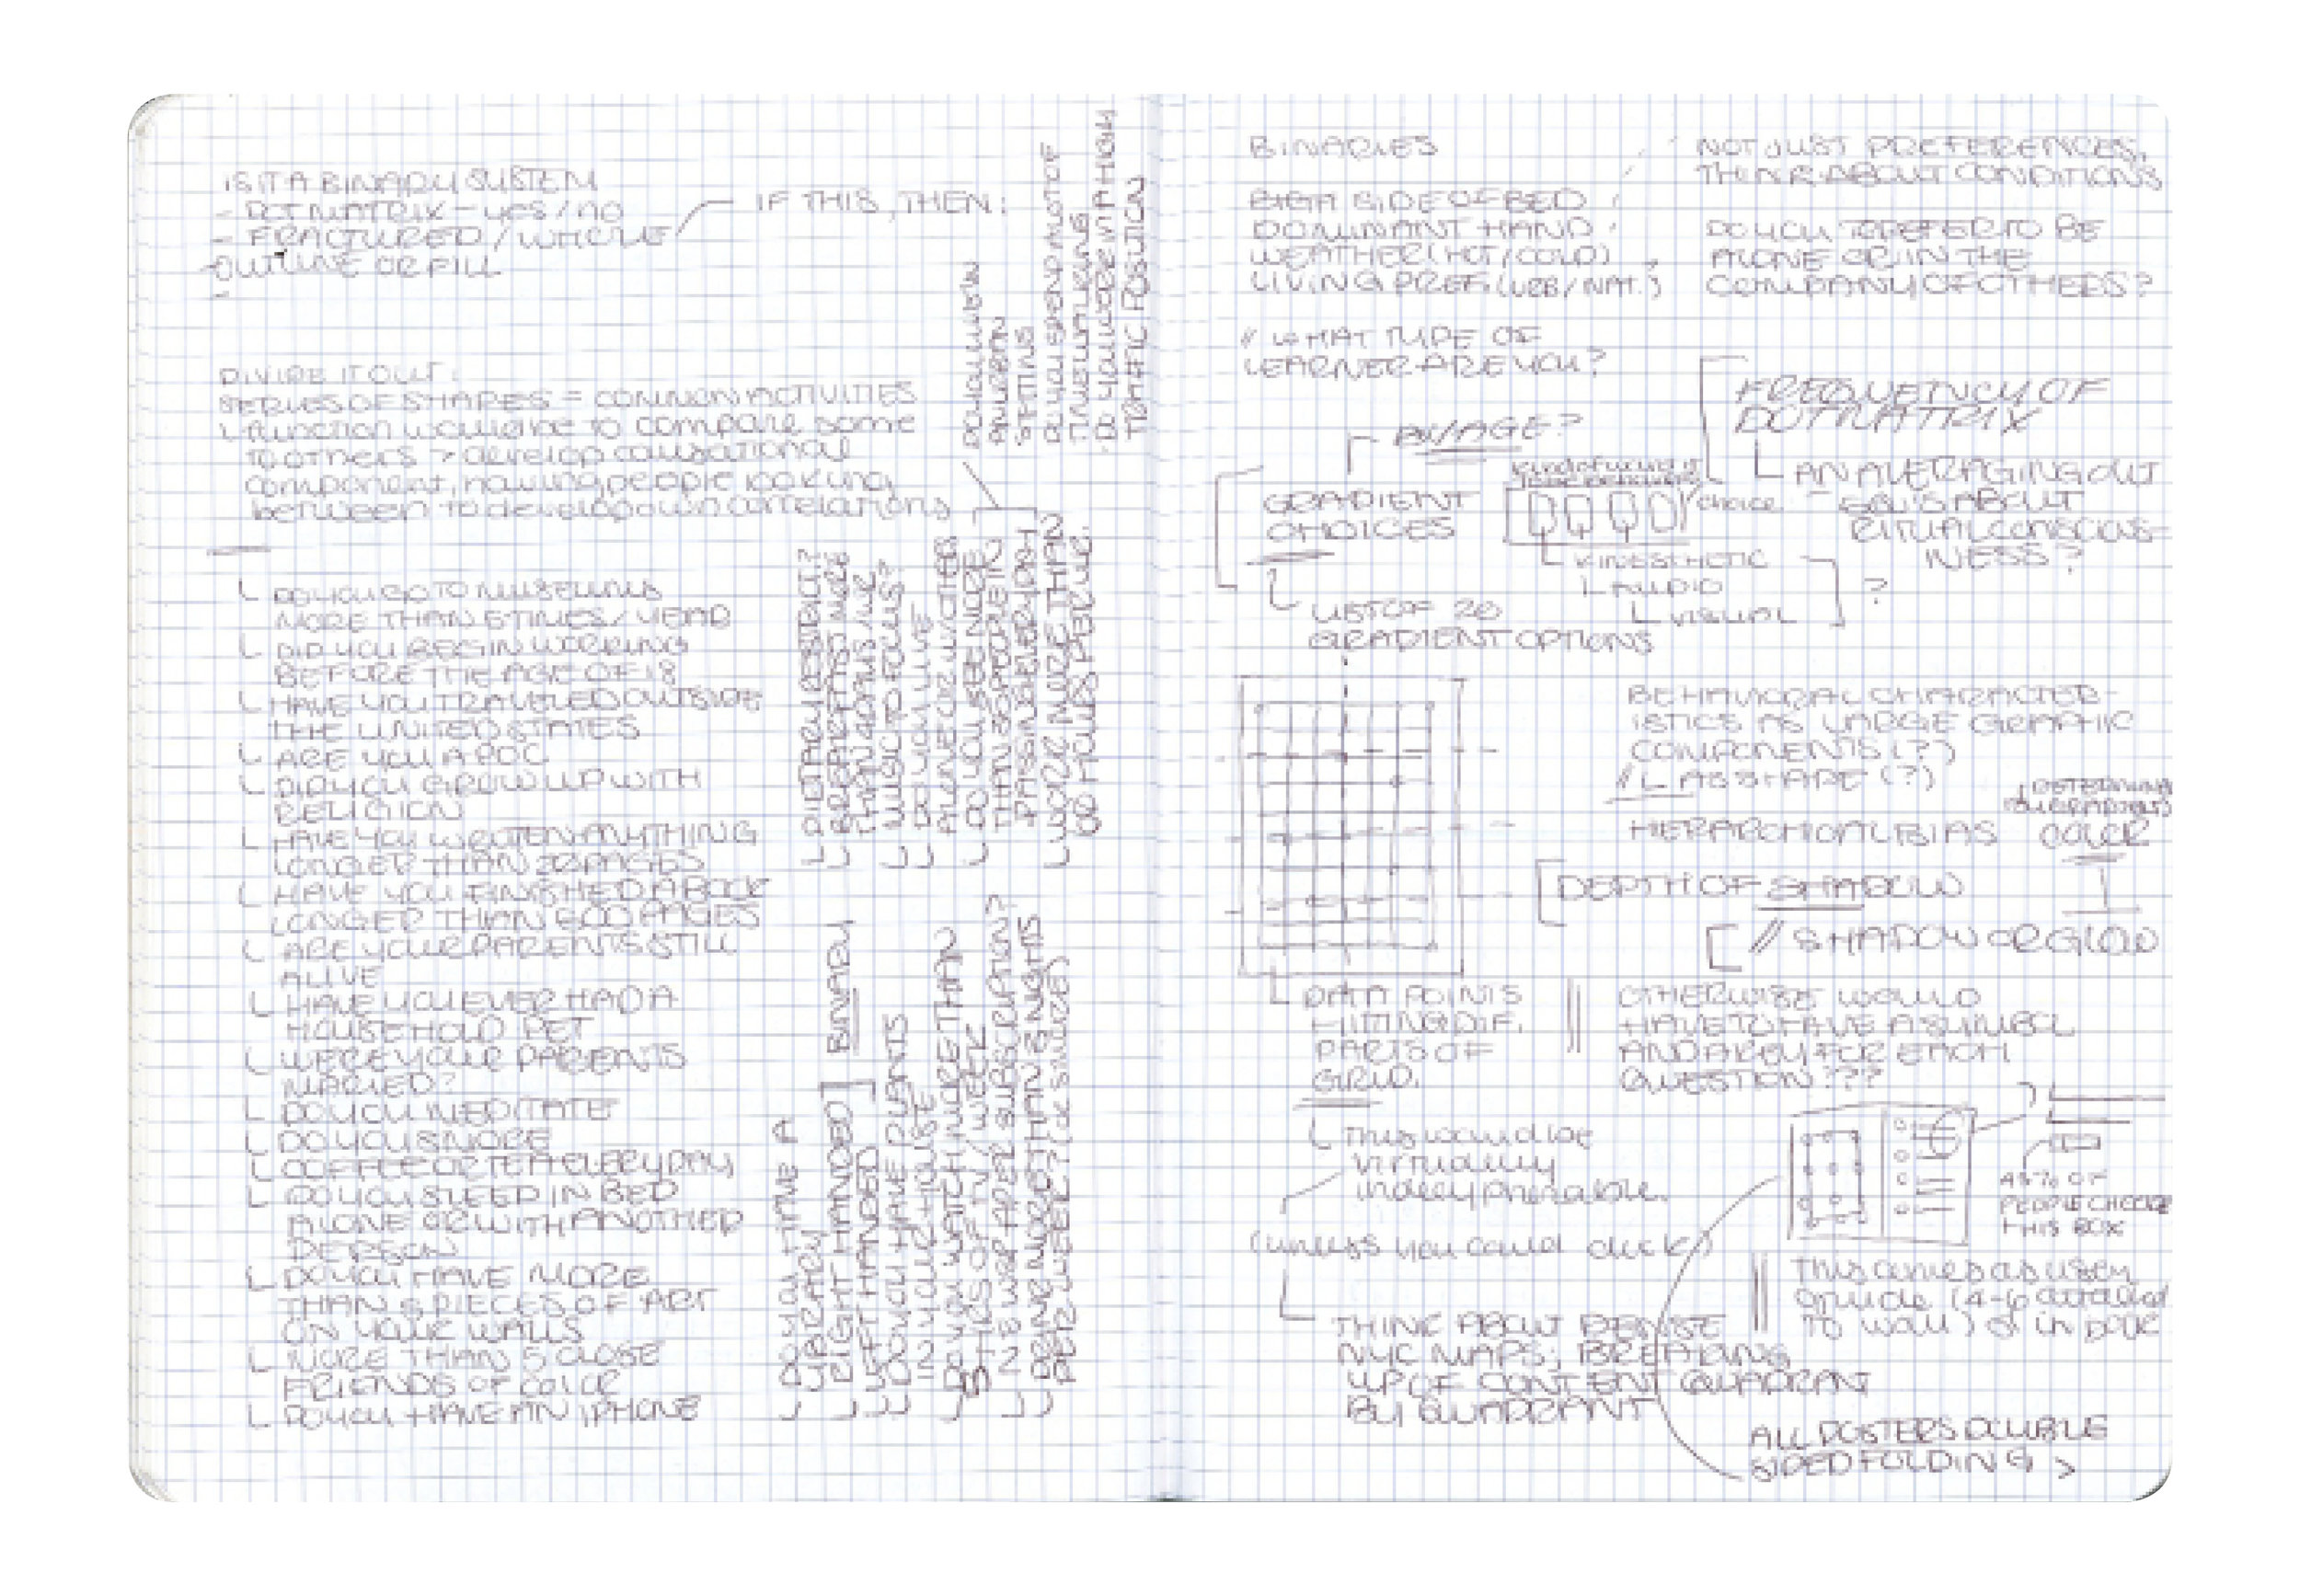 IS IT A BINARY SYSTEM
- DOT MATRIX - YES / NO
- FRACTURED / WHOLE
- OUTLINE OR FILL
-
IF THIS, THEN:
DIVIDE IT OUT:
SERIES OF SHAPES = COMMON ACTIVITIES
function would be to compare some
to others > develop
component, having people looking
between to develop own correlations
DO YOU GO TO MUSEUMS
MORE THAN 5 TIMES / YEAR
DID YOU BEGIN WORKING
BEFORE THE AGE OF 18
HAVE YOU TRAVELED OUTSIDE
THE UNITED STATES
ARE YOU A POC
DID YOU GROW UP WITH
RELIGION
HAVE YOU WRITTEN ANYTHING
LONGER THAN 20 PAGES
HAVE YOU FINISHED A BOOK
LONGER THAN 600 PAGES
ARE YOUR PARENTS STILL
ALIVE
HAVE YOU EVER HAD A
HOUSEHOLD PET
WERE YOUR PARENTS
MARIED?
DO YOU MEDITATE
DO YOU SNORE
COFFEE OR TEA EVERY DAY
DO YOU SLEEP IN BED
ALONE OR WITH ANOTHER
PERSON
DO YOU HAVE MORE
THAN 5 PIECES OF ART
ON YOUR WALLS
MORE THAN 5 CLOSE
FRIENDS OF COLOR
DO YOU HAVE AN IPHONE
DO YOU HAVE A
LIBRARY
RIGHT HANDED
LEFT HANDED
BINARY
DO YOU HAVE PLANTS
IN YOUR HOUSE
DO YOU WATCH MORE THAN
5 HRS OF TV / WEEK
NEWSPAPER SUBSCRIPTION?
DRINK MORE THAN 3 NIGHTS
PER WEEK?
DIETARY RESTRICT?
MUSIC TO FOCUS?
DO YOU LIVE
ALONE OR W/OTHER
DO YOU SEE MORE
THAN 50 PEOPLE IN
PASSING EVERY DAY
WORK MORE THAN
HOURS PER WK.
DO YOU LIVE IN
AN URBAN
SETTING
DO YOU SPEND A LOT OF
TIME
DO YOU WORK IN A HIGH
TRAFFIC POSITION
BINARIES
SIDE OF BED
DOMINANT HAND
WEATHER (HOT / COLD)
LIVING PREF. (URB / NAT.)
NOT JUST PREFERENCES,
THINK ABOUT CONDITIONS
DO YOU PREFER TO BE
ALONE OR IN THE
COMPANY OF OTHERS?
// WHAT TYPE OF
LEARNER ARE YOU?
GRADIENT
CHOICES
choice
KINESTHETIC
AUDIO
VISUAL
?
LIST OF 20
GRADIENT OPTIONS
FREQUENCY OF
DOT MATRIX
AN AVERAGING OUT
IS ABOUT
RITUAL CONSCIOUS-
NESS?
BEHAVIORAL CHARACTER-
ISTICS AS LARGE GRAPHIC
COMPONENTS (?)
// AS SHAPE (?)
HIERARCHICAL BIAS
COLOR
DEPTH OF SHADOW
// SHADOW OR GLOW
DATA POINTS
HITTING DIF.
PARTS OF
GRID.
OTHERWISE WOULD
HAVE TO HAVE A SYMBOL
AND A KEY FOR EACH
QUESTION???
This would be
virtually
indecypherable.
(unless you could click)
THINK ABOUT DENSE
NYC MAPS; BREAKING
UP OF CONTENT QUADRANT
BY QUADRANT
45% OF
PEOPLE CHECKED
THIS BOX
This comes as a key
guide (4-6 attached
to wall) or in book
ALL POSTERS DOUBLE
SIDED FOLDING >